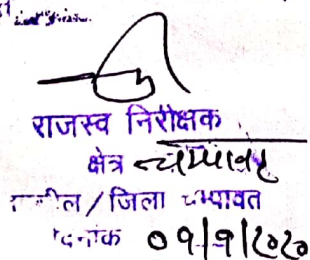 राजस्व निरीक्षक
क्षेत्र चम्पावत
तहसील / जिला चम्पावत
दिनांक 09/9/2020